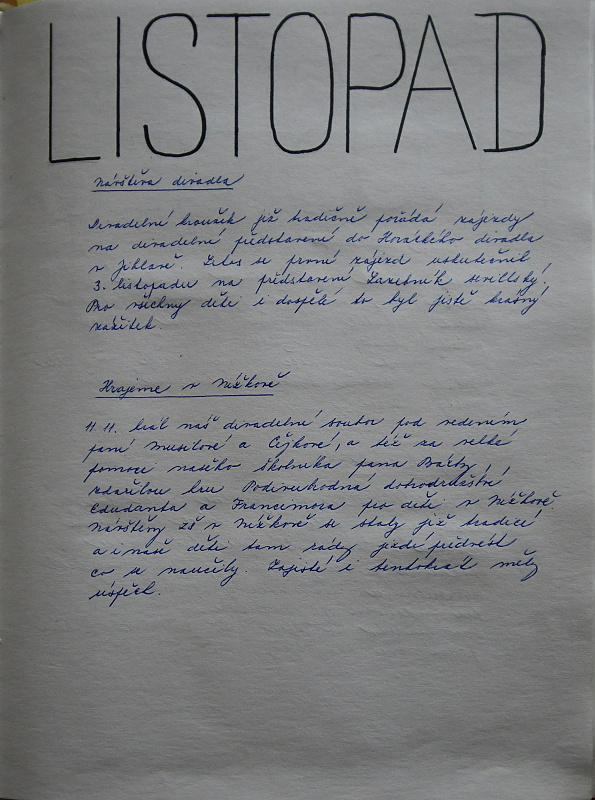 LISTOPAD
Návštěva divadla
Divadelní kroužek již tradičně pořádá zájezdy
na divadelní představení do Horáckého divadla
v Jihlavě. Letos se první zájezd uskutečnil
3. listopadu na představení Lazebník sevillský.
Pro všechny děti i dospělé to byl jistě krásný
zážitek.
Hrajeme v Měžkově
11. 11. hrál náš divadelní soubor pod vedením
paní Musilové a Čejkové, a též za velké
pomoci našeho školníka pana Bárty,
zdařilou hru Podivuhodná dobrodružství
Edudanta a Francimora pro děti v Měžkově.
Návštěvy ZŠ v Měžkově se staly již tradicí
a i naše děti tam rády jezdí předvést
co se naučily. Zajisté i tentokrát měly
úspěch.